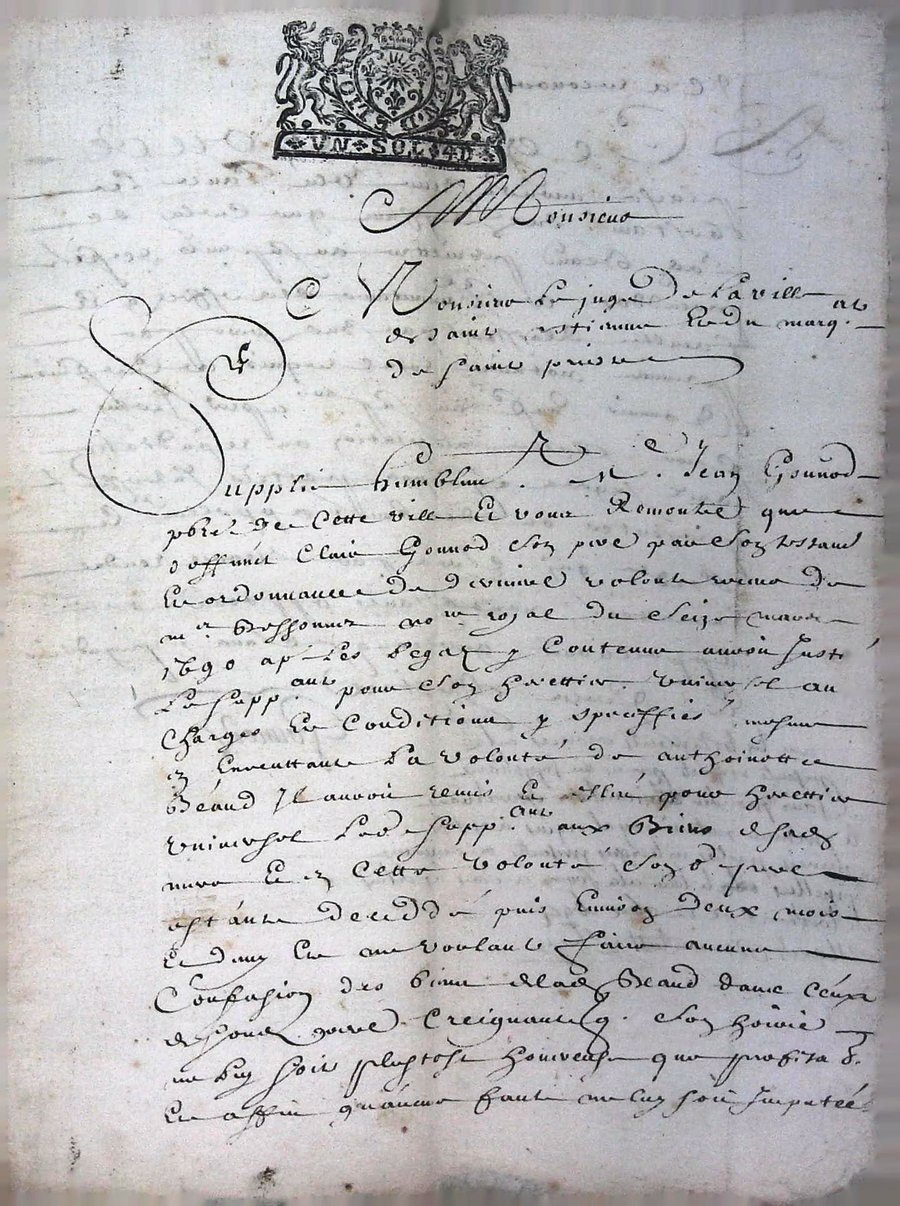 GEN. DE LION
VN SOL 4D
Monsieur
Monsieur Le juge De La Ville
de saint estienne Et du marq.at
de saint priest
Supplie humblem.t M.e Jean Gonnod
pbr̃e de Cette ville Et vous Remontre que
deffunct Clair Gonnod Son pere par Son testam.t
Et ordonnance de derniere volonte receue de
m.e not.re royal du Seize mars
1690 ap.s Les legaz y Contenus auroit Insti.é
Le Supp.ant pour Son herittier universel au
Charges Et Conditions y speciffiés mesme
en Executtant La volonté de anthoinette
Béaud Il auroit remis Et esleu pour herittier
universel Led. Supp.ant aux Biens de sad.
mere Et en Cette volonté Sond. pere
estánt decedé puis Environ deux mois
Et ne voulant faire aucune
Confusion des biens de lad. Béaud dans Ceux
de Sond. pere Creignant q. Son hoirie
ne luy soit plustost honereuse que profitab.
Et affin qu'aucune faute ne luy soit Imputée